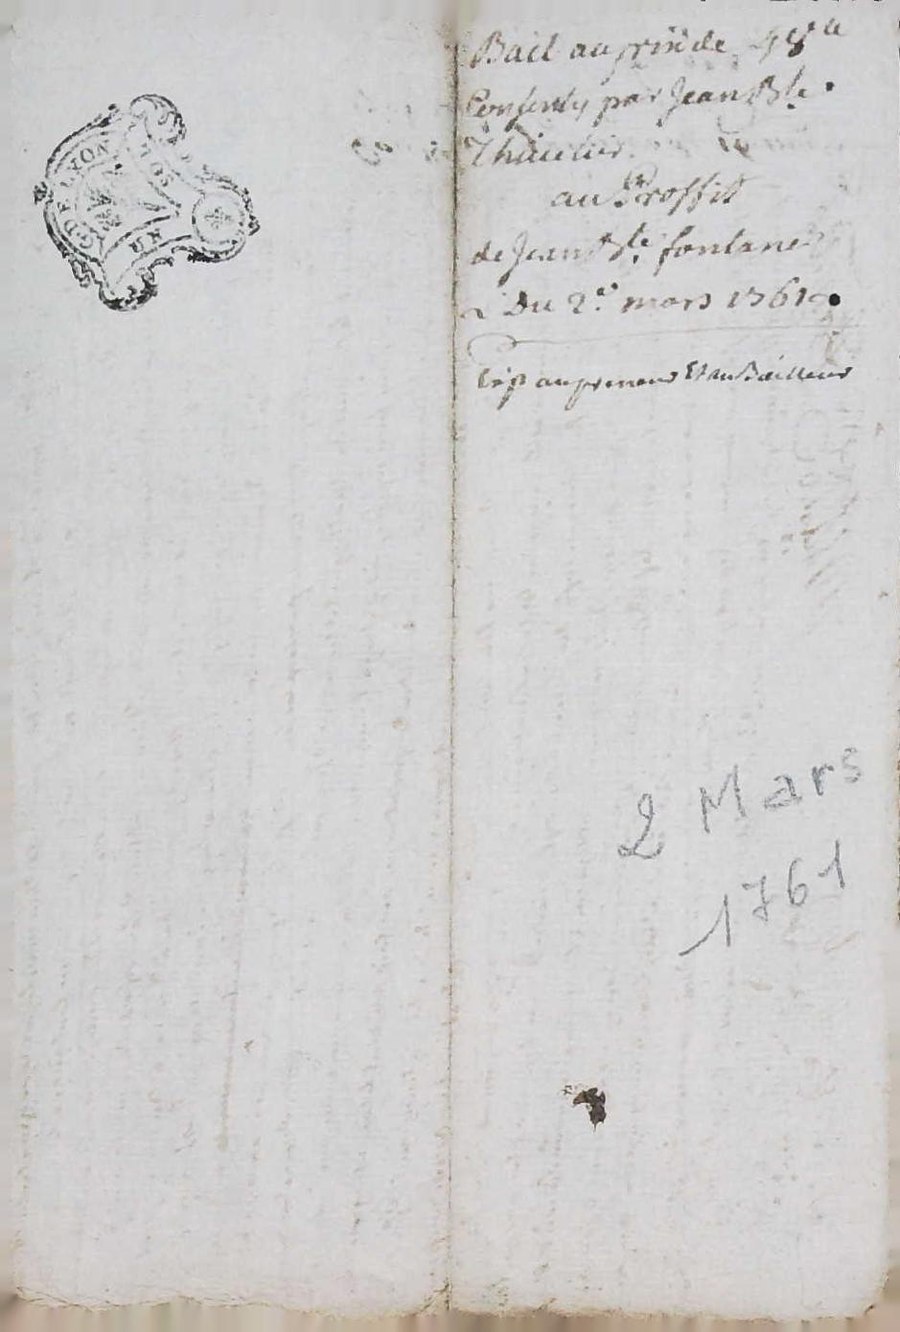 G. DE LYON
SOL
UN
Bail au prix de 48 ll
Consenty par Jean Bte.
Thaulier
au Proffit
de Jean Bte. fontanel
Du 2e. mars 1761.
Exp au preneur Et au Bailleur
2 Mars
1761